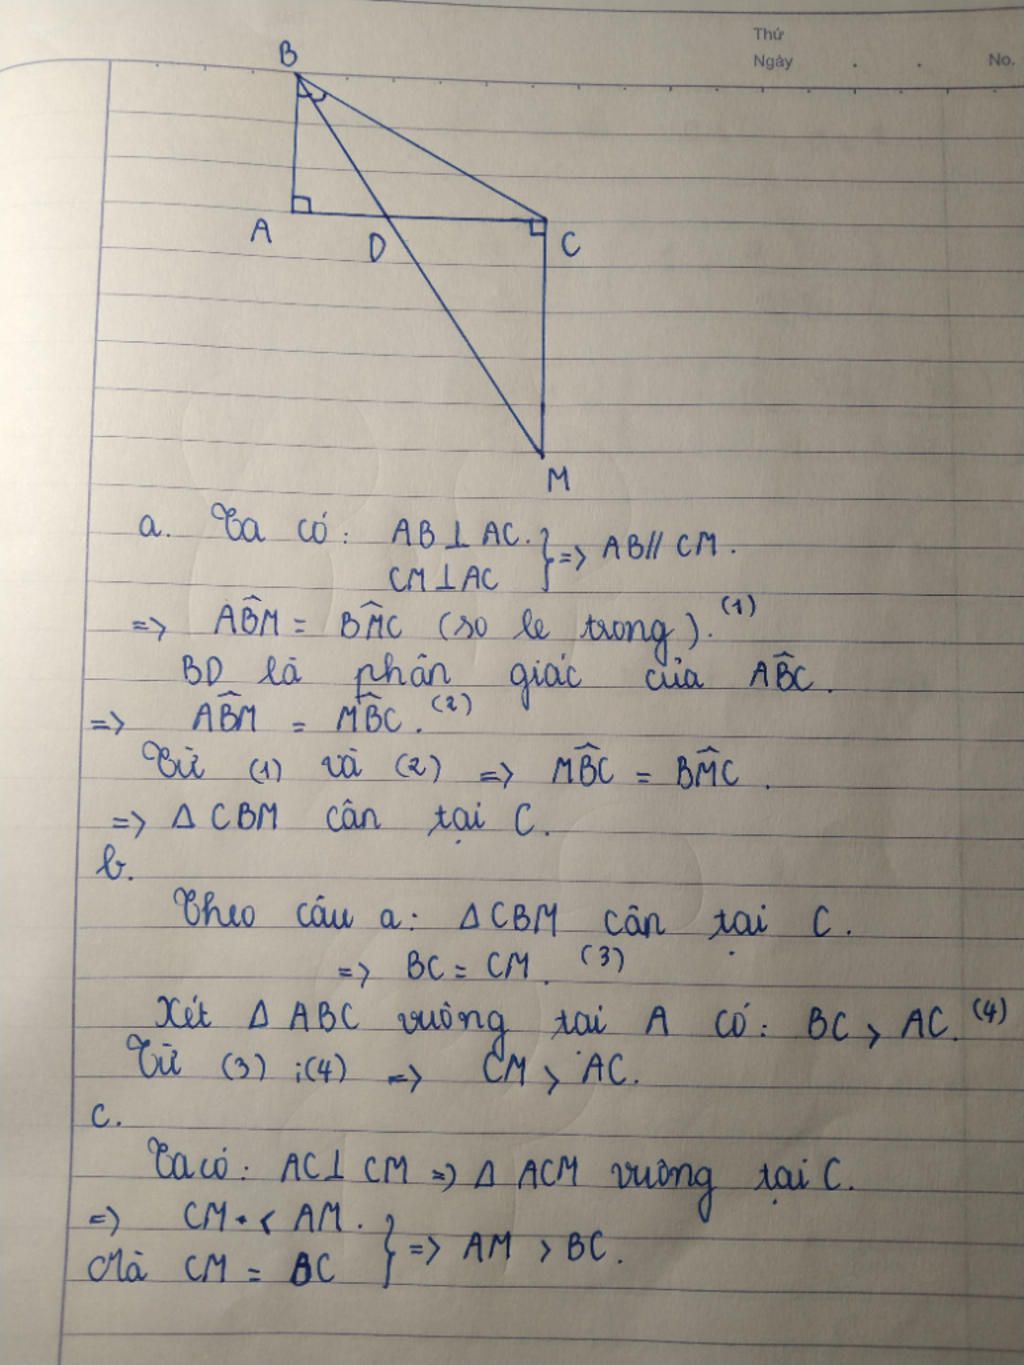 Thứ
Ngày . . No.
B
A
D
C
M
a. Ta có: AB ⊥ AC. } => AB // CM.
CM ⊥ AC
=> AB̂M = BM̂C (so le trong). (1)
BD là phân giác của AB̂C.
=> AB̂M = MB̂C. (2)
Từ (1) và (2) => MB̂C = BM̂C.
=> Δ CBM cân tại C.
b.
Theo câu a: Δ CBM cân tại C.
=> BC = CM. (3)
Xét Δ ABC vuông tại A có: BC > AC. (4)
Từ (3) ; (4) => CM > AC.
c.
Ta có: AC ⊥ CM => Δ ACM vuông tại C.
=> CM < AM. } => AM > BC.
Mà CM = BC